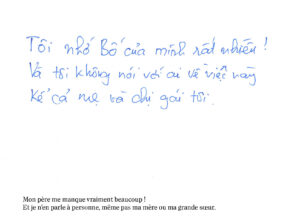 Tôi nhớ Bố của mình rất nhiều !
Và tôi không nói với ai về việc này
Kể cả mẹ và chị gái tôi.
Mon père me manque vraiment beaucoup !
Et je n'en parle à personne, même pas ma mère ou ma grande sœur.